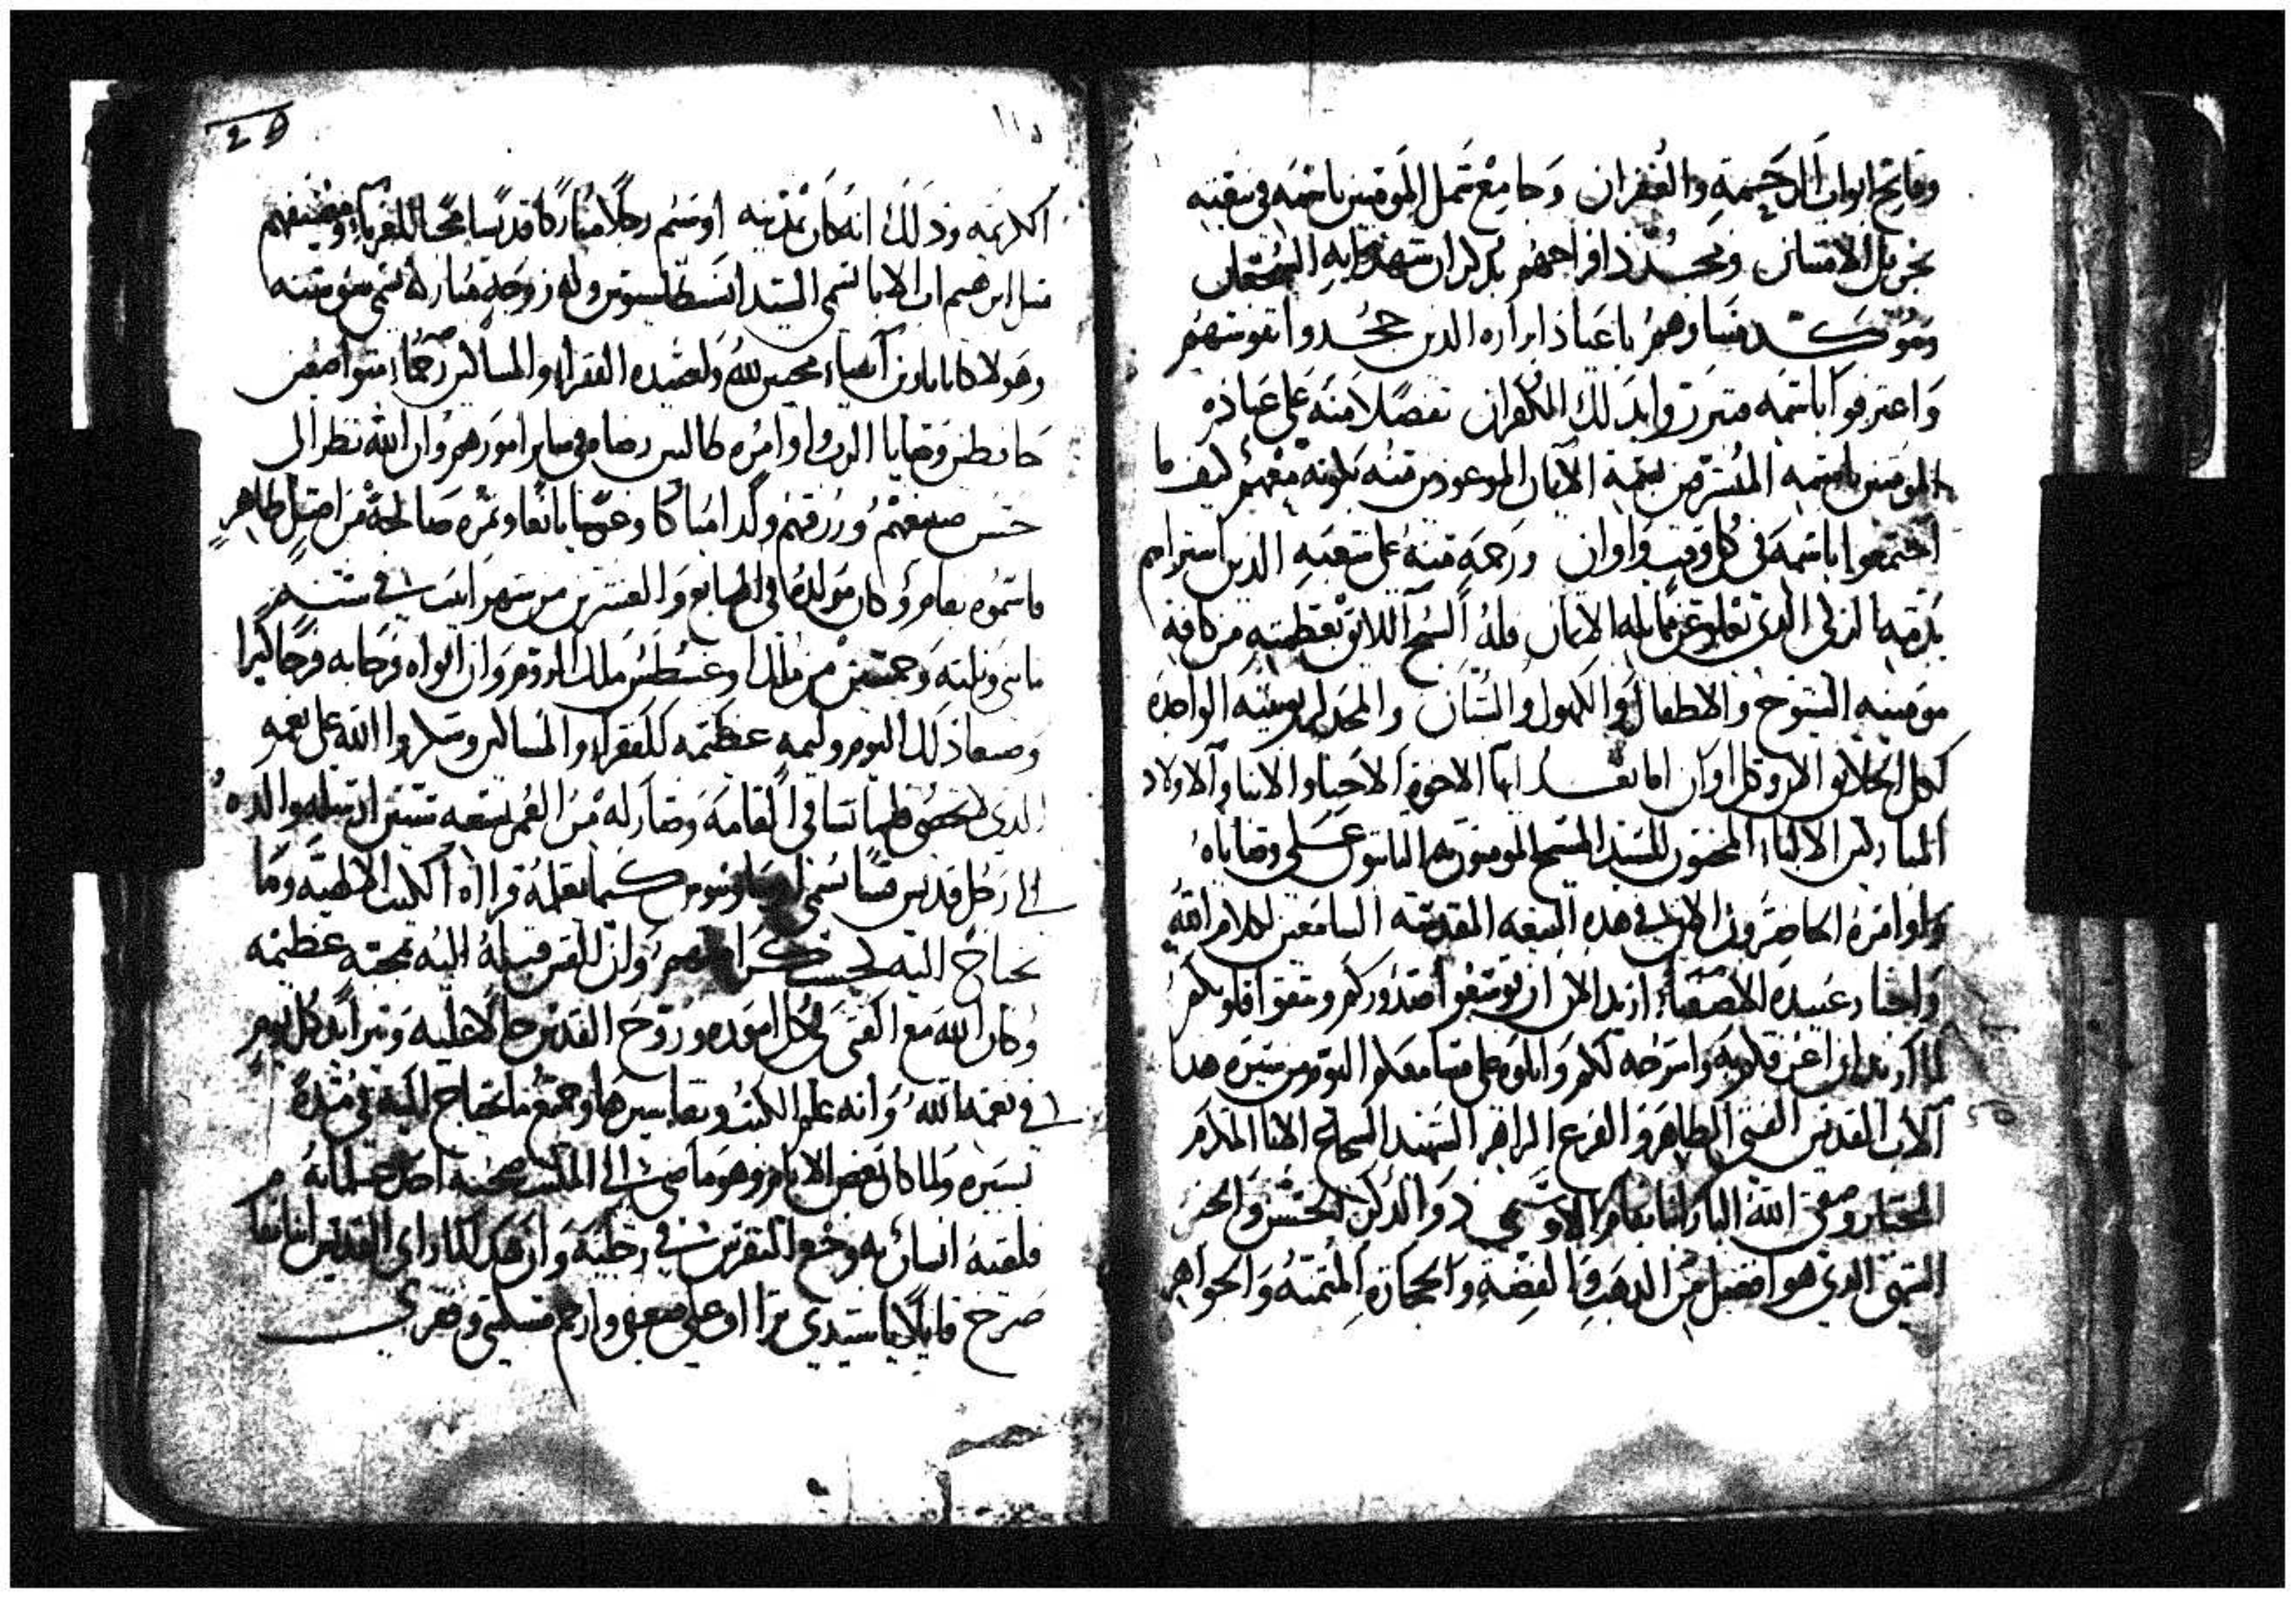 وفاتح ابواب الرحمة والغفران وجامع شمل المومنين باسمه في بيعته
بجزيل الامتنان ومجدد افراحهم بتدكار شهدايه الشجعان
وموكد مسارهم باعياد ابراره الدين جحدوا نفوسهم
واعترفوا باسمه متبررين بدلك الكفران تفضلا منه على عباده
المومنين باسمه بنعمة الايمان الموعودين منه بكونه معهم كيف ما
اجتمعوا باسمه في كل وقت واوان ورحمة منه على شعبه الدين اشتراهم
بدمه الدي تعلو عن الاتمان فله السبح اللايق بعظمته من كافة
مومنيه الشيوخ والاطفال والكهول والشبان والمجد لربوبيته الواجبة
لكل الخلايق الان وكل اوان اما بعد ايها الاخوة الاحباء والابنا والاولاد
المباركين الالباء المحبون للسيد المسيح المومنون به الثابتون على وصاياه
واوامره الحاضرون الان في هده البيعه المقدسه السامعين لكلام الله
واخبار عبيده الاصفياء اريد الان ان توسعوا صدوركم وتنقوا قلوبكم
لما اريد ان واشرحه لكم واتلوه على مسامعكم اليوم من سيرة هدا
الاب القديس الفتى الطاهر والفرع الزاهر الشهيد الشجاع الانا المكرم
المختار وصفي الله البار انبا بغام الاوشيمي دو الدكر الحسن والخبر
السمي الدي هو افضل من الدهب والفضة والحجارة المثمنه والجواهر
١١٥
الكريمه ودلك انه كان بمدينه اوسيم رجلا مباركا قديسا محبا للغربا ومضيفهم
مثل ابرهيم اب الابا تسمى السيد انسطاسيوس وله زوجه مباركه تسمى سوسنه
وهولا كانا بارين اتقياء محبين لله ولعبيده الفقراء والمساكين رحماء متواضعين
حافظين وصايا الرب واوامره طالبين رضاه في ساير امورهم وان الله نظر الى
حسن صنيعهم ورزقهم ولدا مباركا وغرسا يانعا وتمره صالحة من اصل طاهر
فاسموه بغام وكان مولده في السابع والعشرين من شهر ابيب في سنه
مايتي وثلثه وخمسين من ملك اوغسطس ملك الروم وان ابواه فرحا به فرحا كبيرا
وصنعا دلك اليوم وليمه عظيمه للفقراء والمساكين وشكروا الله على نعمه
الدي فلما نشا في القامه وصار له من العمر سبعه سنين ارسله والده
الى رجل قديس قسا تسمى كيما يعلمه قرااة الكتب الالهية وما
يحتاج اليه وان القس قبله اليه بمحبه عظيمه
وكان الله مع الفتى في كل اموره وروح القدس حالا عليه وتزايد كل يوم
في نعمه الله وانه علم الكتب وتفاسيرها وجميع ما يحتاج اليه في مدة
يسيره ولما كان بعض الايام وهو ماضي الى المكتب صحبه احد غلمانه
فلقيه انسان به وجع النقرس في رجليه وان هدا لما راى القديس انبا بغام
صرخ قايلا يا سيدي وارحم مسكنتي وفقري